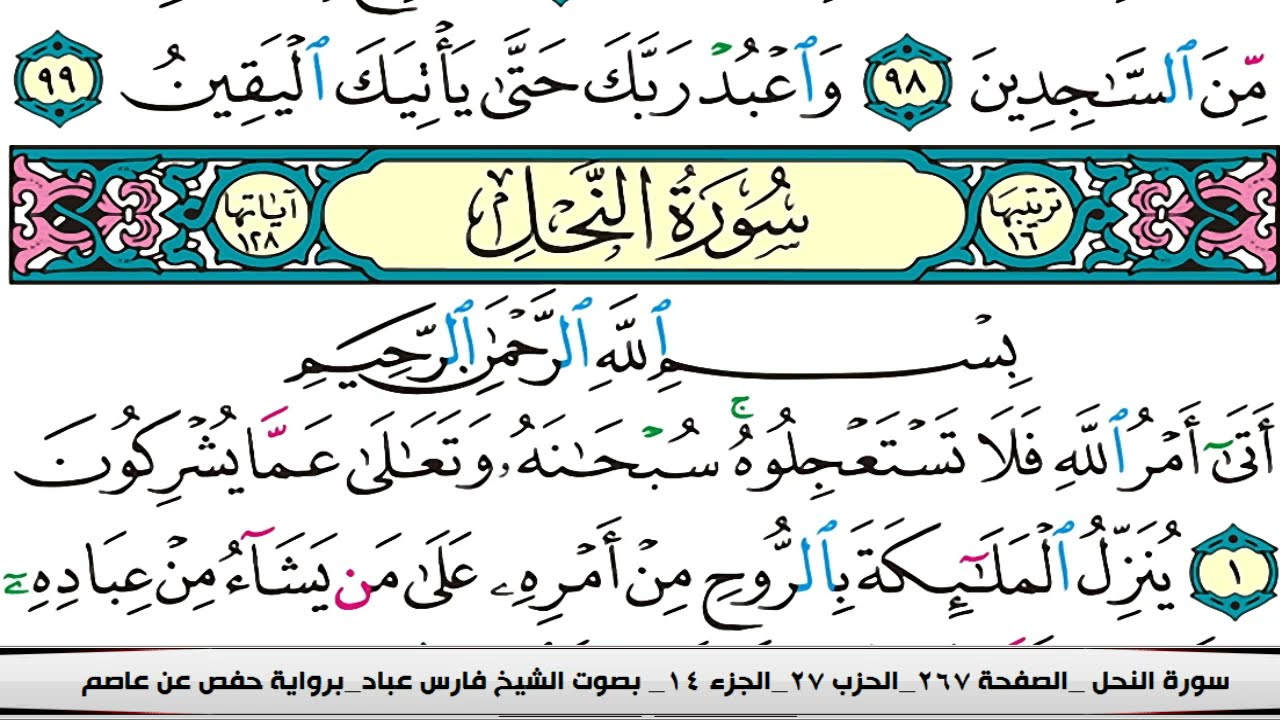 مِّنَ ٱلسَّٰجِدِينَ ٩٨ وَٱعۡبُدۡ رَبَّكَ حَتَّىٰ يَأۡتِيَكَ ٱلۡيَقِينُ ٩٩
ترتيبها ١٦ سُورَةُ النَّحْلِ آياتها ١٢٨
بِسۡمِ ٱللَّهِ ٱلرَّحۡمَٰنِ ٱلرَّحِيمِ
أَتَىٰٓ أَمۡرُ ٱللَّهِ فَلَا تَسۡتَعۡجِلُوهُۚ سُبۡحَٰنَهُۥ وَتَعَٰلَىٰ عَمَّا يُشۡرِكُونَ
١ يُنَزِّلُ ٱلۡمَلَٰٓئِكَةَ بِٱلرُّوحِ مِنۡ أَمۡرِهِۦ عَلَىٰ مَن يَشَآءُ مِنۡ عِبَادِهِۦٓ
سورة النحل _الصفحة ٢٦٧_الحزب ٢٧_الجزء ١٤_ بصوت الشيخ فارس عباد_برواية حفص عن عاصم